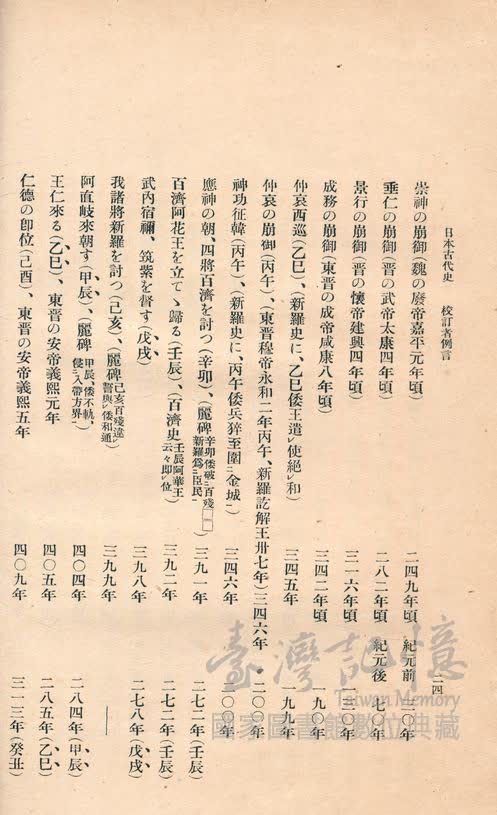 日本古代史 校訂者例言 二四
崇神の崩御(魏の廢帝嘉平元年頃) 二四九年頃 紀元前 三〇年
垂仁の崩御(晋の武帝太康四年頃) 二八二年頃 紀元後 七〇年
景行の崩御(晋の懷帝建興四年頃) 三一六年頃 一三〇年
成務の崩御(東晋の成帝咸康八年頃) 三四二年頃 一九〇年
仲哀西巡(乙巳)、(新羅史に、乙巳倭王遣レ使絕レ和) 三四五年 一九九年
仲哀の崩御(丙午)、(東晋穆帝永和二年丙午、新羅訖解王卅七年)三四六年 二〇〇年
神功征韓(丙午)、(新羅史に、丙午倭兵猝至圍二金城一) 三四六年 二〇〇年
應神の朝、四將百濟を討つ(辛卯)、(麗碑 辛卯倭破二百殘□□新羅爲二臣民一) 三九一年 二七二年(壬辰)
百濟阿花王を立てゝ歸る(壬辰)、(百濟史 壬辰阿華王云々即レ位) 三九二年 二七二年(壬辰)
武內宿禰、筑紫を督す(戊戌) 三九八年 二七八年(戊戌)
我諸將新羅を討つ(己亥)、(麗碑 己亥百殘違誓與レ倭和通) 三九九年 ——
阿直岐來朝す(甲辰)、(麗碑 甲辰、倭不軌、侵二入帶方界一) 四〇四年 二八四年(甲辰)
王仁來る(乙巳)、東晋の安帝義熙元年 四〇五年 二八五年(乙巳)
仁德の卽位(己酉)、東晋の安帝義熙五年 四〇九年 三一三年(癸丑)
臺灣記憶
Taiwan Memory
國家圖書館數位典藏